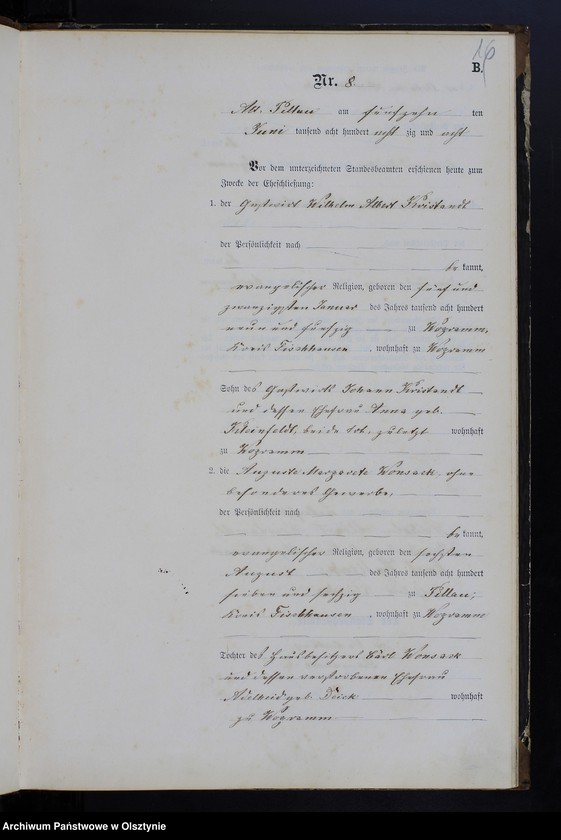 16
B.
Nr. 8.
Alt. Pillau am fünfzehn ten
Juni tausend acht hundert acht zig und acht
Vor dem unterzeichneten Standesbeamten erschienen heute zum
Zwecke der Eheschließung:
1. der Gastwirt Wilhelm Albert
der Persönlichkeit nach
be kannt,
evangelischer Religion, geboren den fünf und
zwanzigsten Januar des Jahres tausend acht hundert
neun und fünfzig zu
Kreis Fischhausen, wohnhaft zu
Sohn des Gastwirts Johann
und dessen Ehefrau Anna geb.
Kleinfeldt, beide todt, zuletzt wohnhaft
zu
2. die Auguste Margarete Wonsack, ohne
besonderes Gewerbe,
der Persönlichkeit nach
be kannt,
evangelischer Religion, geboren den sechsten
August des Jahres tausend acht hundert
sieben und sechzig zu Pillau,
Kreis Fischhausen, wohnhaft zu
Tochter des Hausbesitzers Carl Wonsack
und dessen verstorbenen Ehefrau
Adelheid geb. wohnhaft
zu
Archiwum Państwowe w Olsztynie